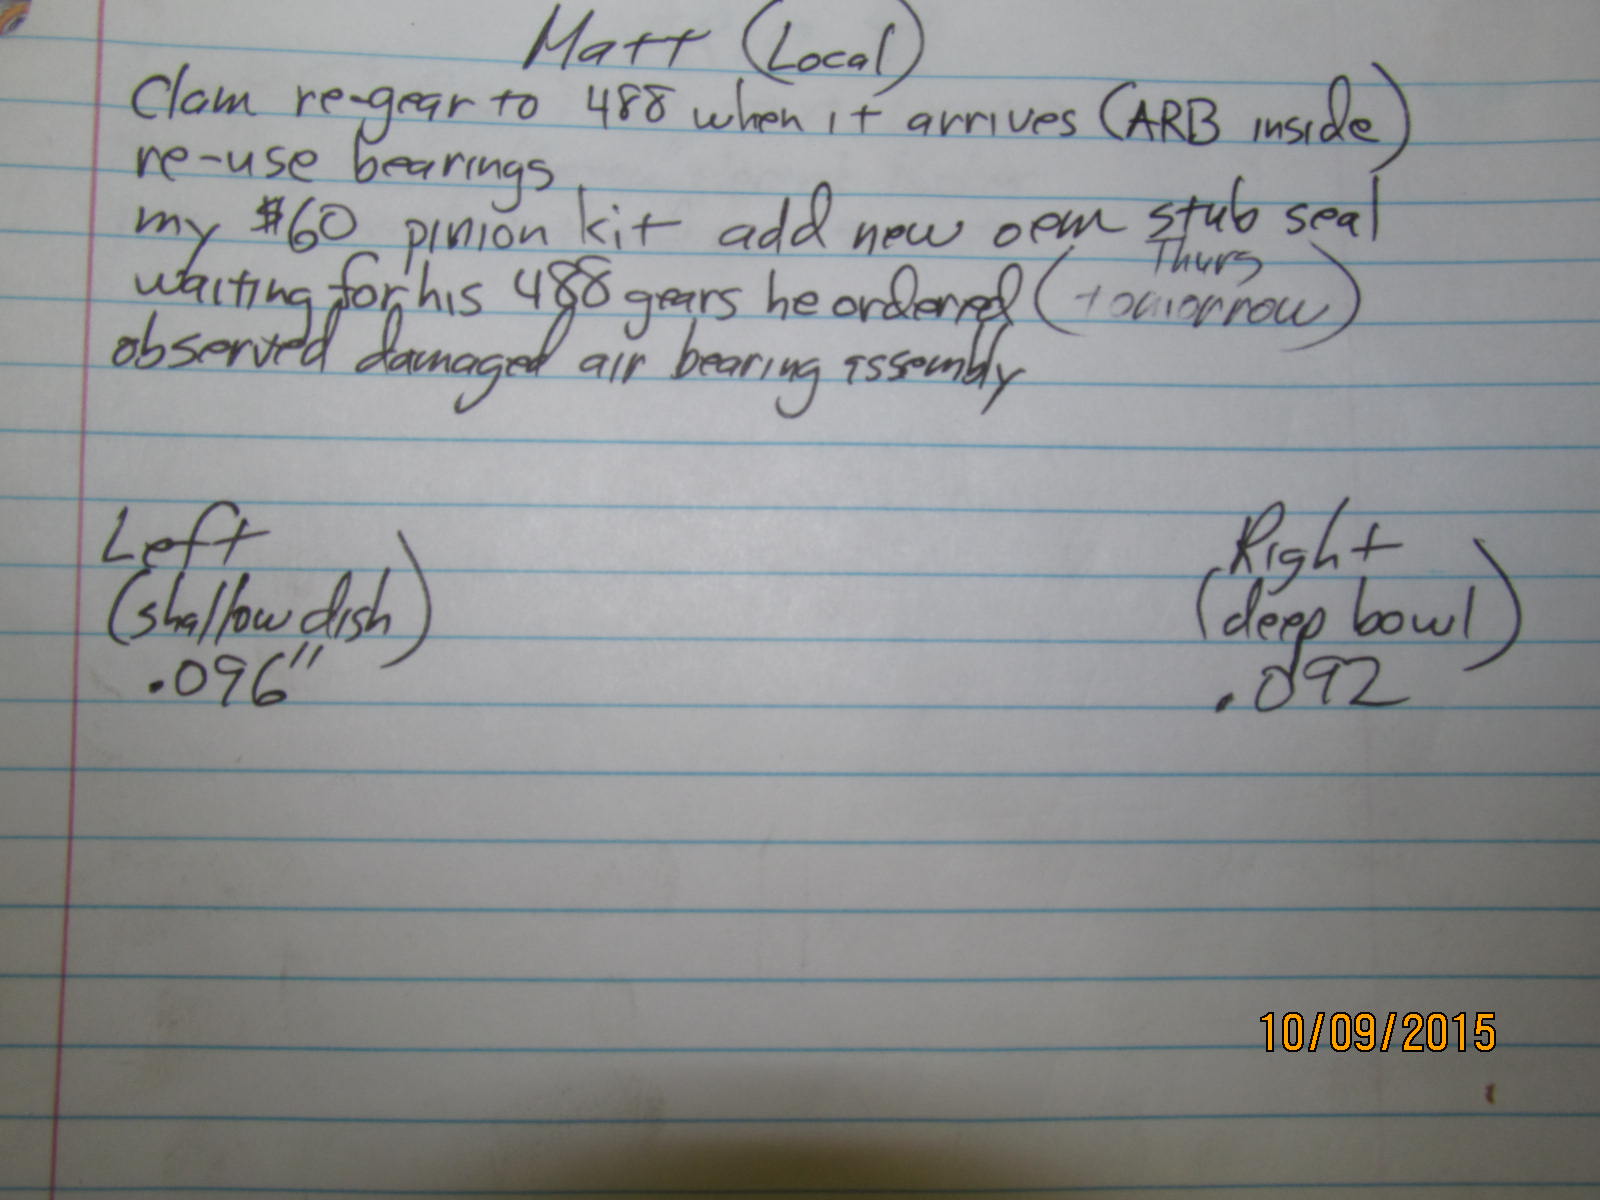 Matt (Local)
Clam re-gear to 488 when it arrives (ARB inside)
re-use bearings
my $60 pinion kit add new oem stub seal
Thurs
waiting for his 488 gears he ordered (tomorrow)
observed damaged air bearing assembly
Left
(shallow dish)
.096"
Right
(deep bowl)
.092
10/09/2015